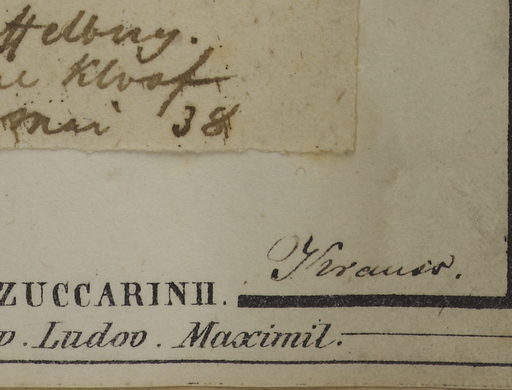 Hellbuy.
Kloof
mai 38
Krauss.
ZUCCARINII.
Ludov. Maximil.